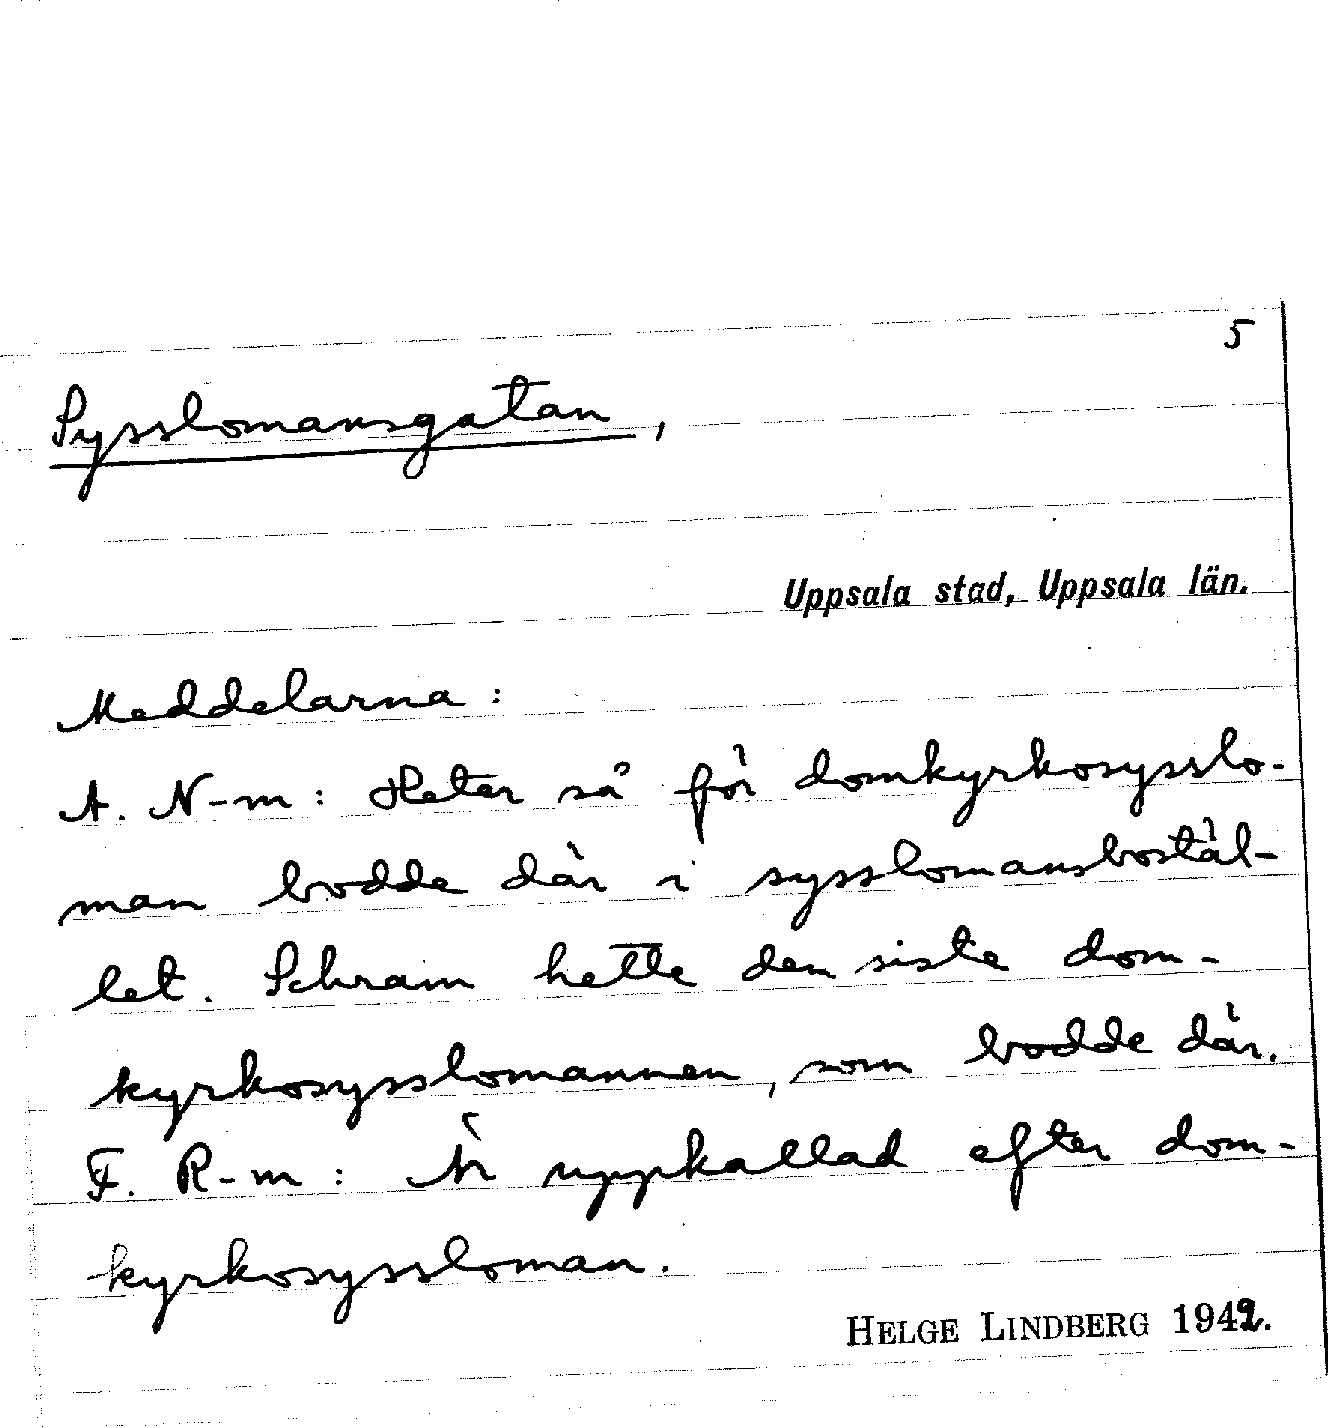 5
Sysslomansgatan,
Uppsala stad, Uppsala län.
Meddelarna:
A. N-m: Heter så för domkyrkosysslo-
man bodde där i sysslomansbostäl-
let. Schram hette den siste dom-
kyrkosysslomannen, som bodde där.
F. R-m: Är uppkallad efter dom-
kyrkosyssloman.
HELGE LINDBERG 1942.